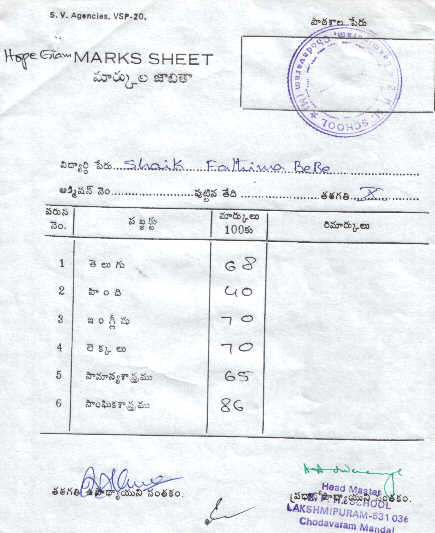 S. V. Agencies, VSP-20.
పాఠశాల పేరు
Hope Glam MARKS SHEET
మార్కుల జాబితా
SCHOOL
Chodavaram
విద్యార్థి పేరు Shaik Fathima BeBe
అడ్మిషన్ నెం. పుట్టిన తేది తరగతి X
వరుస నెం. సబ్జక్టు మార్కులు 100కు రిమార్కులు
1 తెలుగు 68
2 హింది 40
3 ఇంగ్లీషు 70
4 లెక్కలు 70
5 సామాన్యశాస్త్రము 65
6 సాంఘికశాస్త్రము 86
తరగతి ఉపాధ్యాయుని సంతకం.
ప్రధానోపాధ్యాయుని సంతకం.
Head Master
H. SCHOOL
LAKSHMIPURAM-531 036
Chodavaram Mandal